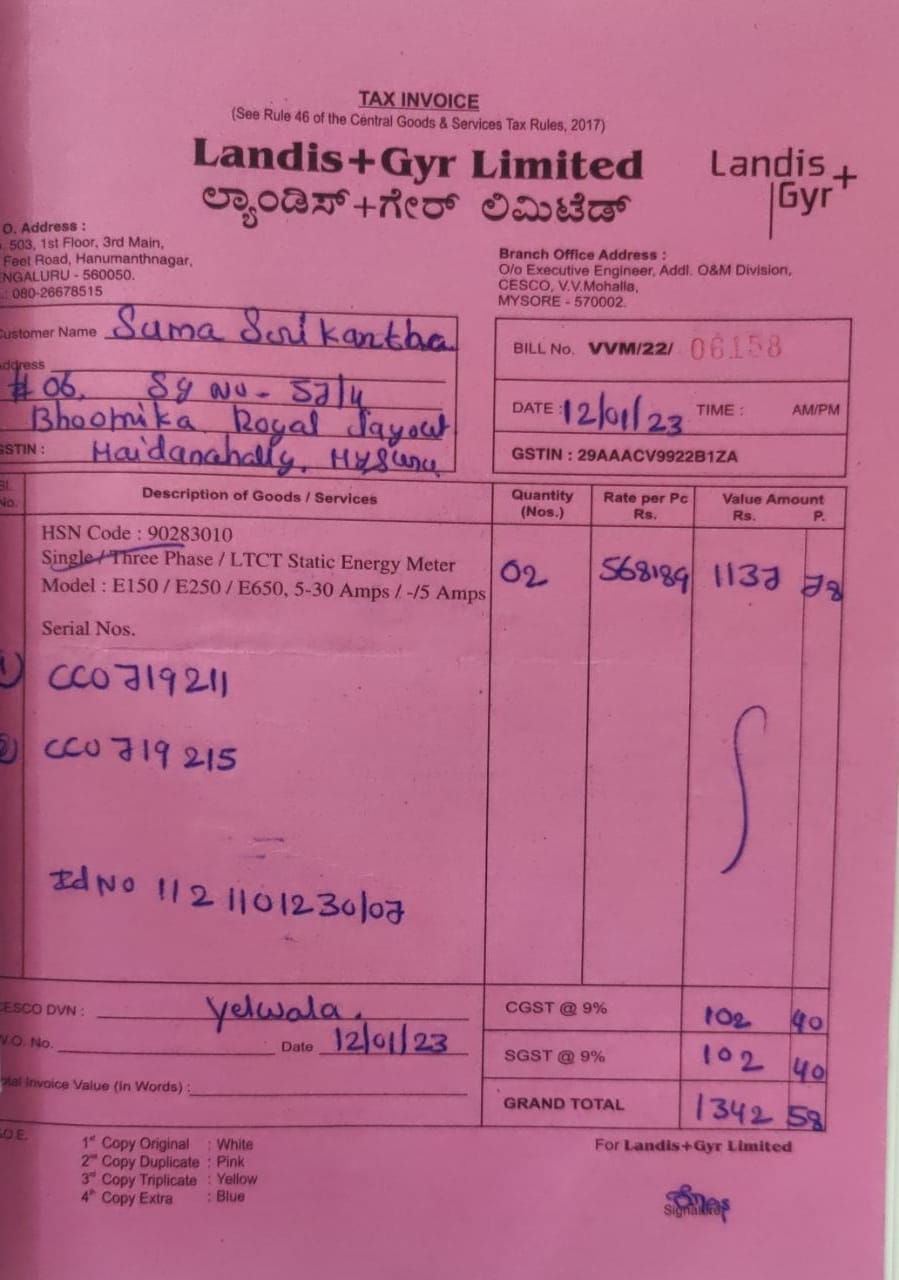 TAX INVOICE
(See Rule 46 of the Central Goods & Services Tax Rules, 2017)
Landis+Gyr Limited
ಲ್ಯಾಂಡಿಸ್+ಗೇರ್ ಲಿಮಿಟೆಡ್
Landis+
Gyr
O. Address :
503, 1st Floor, 3rd Main,
Feet Road, Hanumanthnagar,
NGALURU - 560050.
: 080-26678515
Branch Office Address :
O/o Executive Engineer, Addl. O&M Division,
CESCO, V.V.Mohalla,
MYSORE - 570002.
Customer Name Suma Srikantha
Address
# 06, Sy NO - 57/4
Bhoomika Royal Layout
GSTIN : Maidanahally, Mysuru
BILL No. VVM/22/ 06158
DATE : 12/01/23 TIME : AM/PM
GSTIN : 29AAACV9922B1ZA
Sl. No. Description of Goods / Services Quantity (Nos.) Rate per Pc Rs. Value Amount Rs. P.
HSN Code : 90283010
Single / Three Phase / LTCT Static Energy Meter 02 568189 1137 78
Model : E150 / E250 / E650, 5-30 Amps / -/5 Amps
Serial Nos.
1) CC0719211
2) CC0719215
Id NO 1121101230/07
CESCO DVN : Yelwala.
W.O. No. Date 12/01/23
Total Invoice Value (In Words) :
CGST @ 9% 102 40
SGST @ 9% 102 40
GRAND TOTAL 1342 58
O.E.
1st Copy Original : White
2nd Copy Duplicate : Pink
3rd Copy Triplicate : Yellow
4th Copy Extra : Blue
For Landis+Gyr Limited
Signature